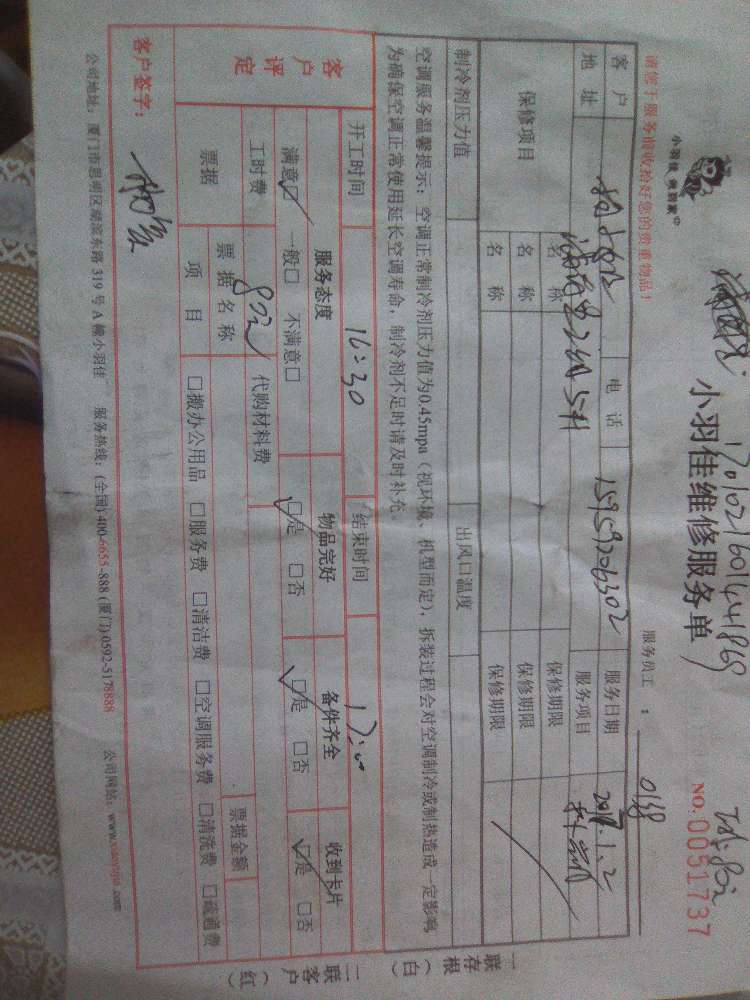 小羽佳 象到家
小羽佳维修服务单
170102160144869
NO.0051737
请您于服务前收拾好您的贵重物品!
服务员工: 0138
客户 电话 15959206302 服务日期 2017.1.2
地址 服务项目
保修项目 名称 保修期限
名称 保修期限
名称 保修期限
制冷剂压力值 出风口温度
空调服务温馨提示:空调正常制冷剂压力值为0.45mpa(视环境、机型而定),拆装过程会对空调制冷或制热造成一定影响
为确保空调正常使用延长空调寿命,制冷剂不足时请及时补充。
开工时间 16:30 结束时间 17:00
客户评定 服务态度 物品完好 备件齐全 收到卡片
满意□ 一般□ 不满意□ □是 □否 □是 □否 □是 □否
工时费 80元 代购材料费
票据 票据名称 票据金额
项目 □搬办公用品 □服务费 □清洁费 □空调服务费 □清洗费 □疏通费
客户签字:
公司地址:厦门市思明区湖滨东路319号A幢小羽佳 服务热线:(全国)400-6655-888(厦门)0592-5178888 公司网站:www.xiaoyujia.com
一联存根(白)
二联客户(红)